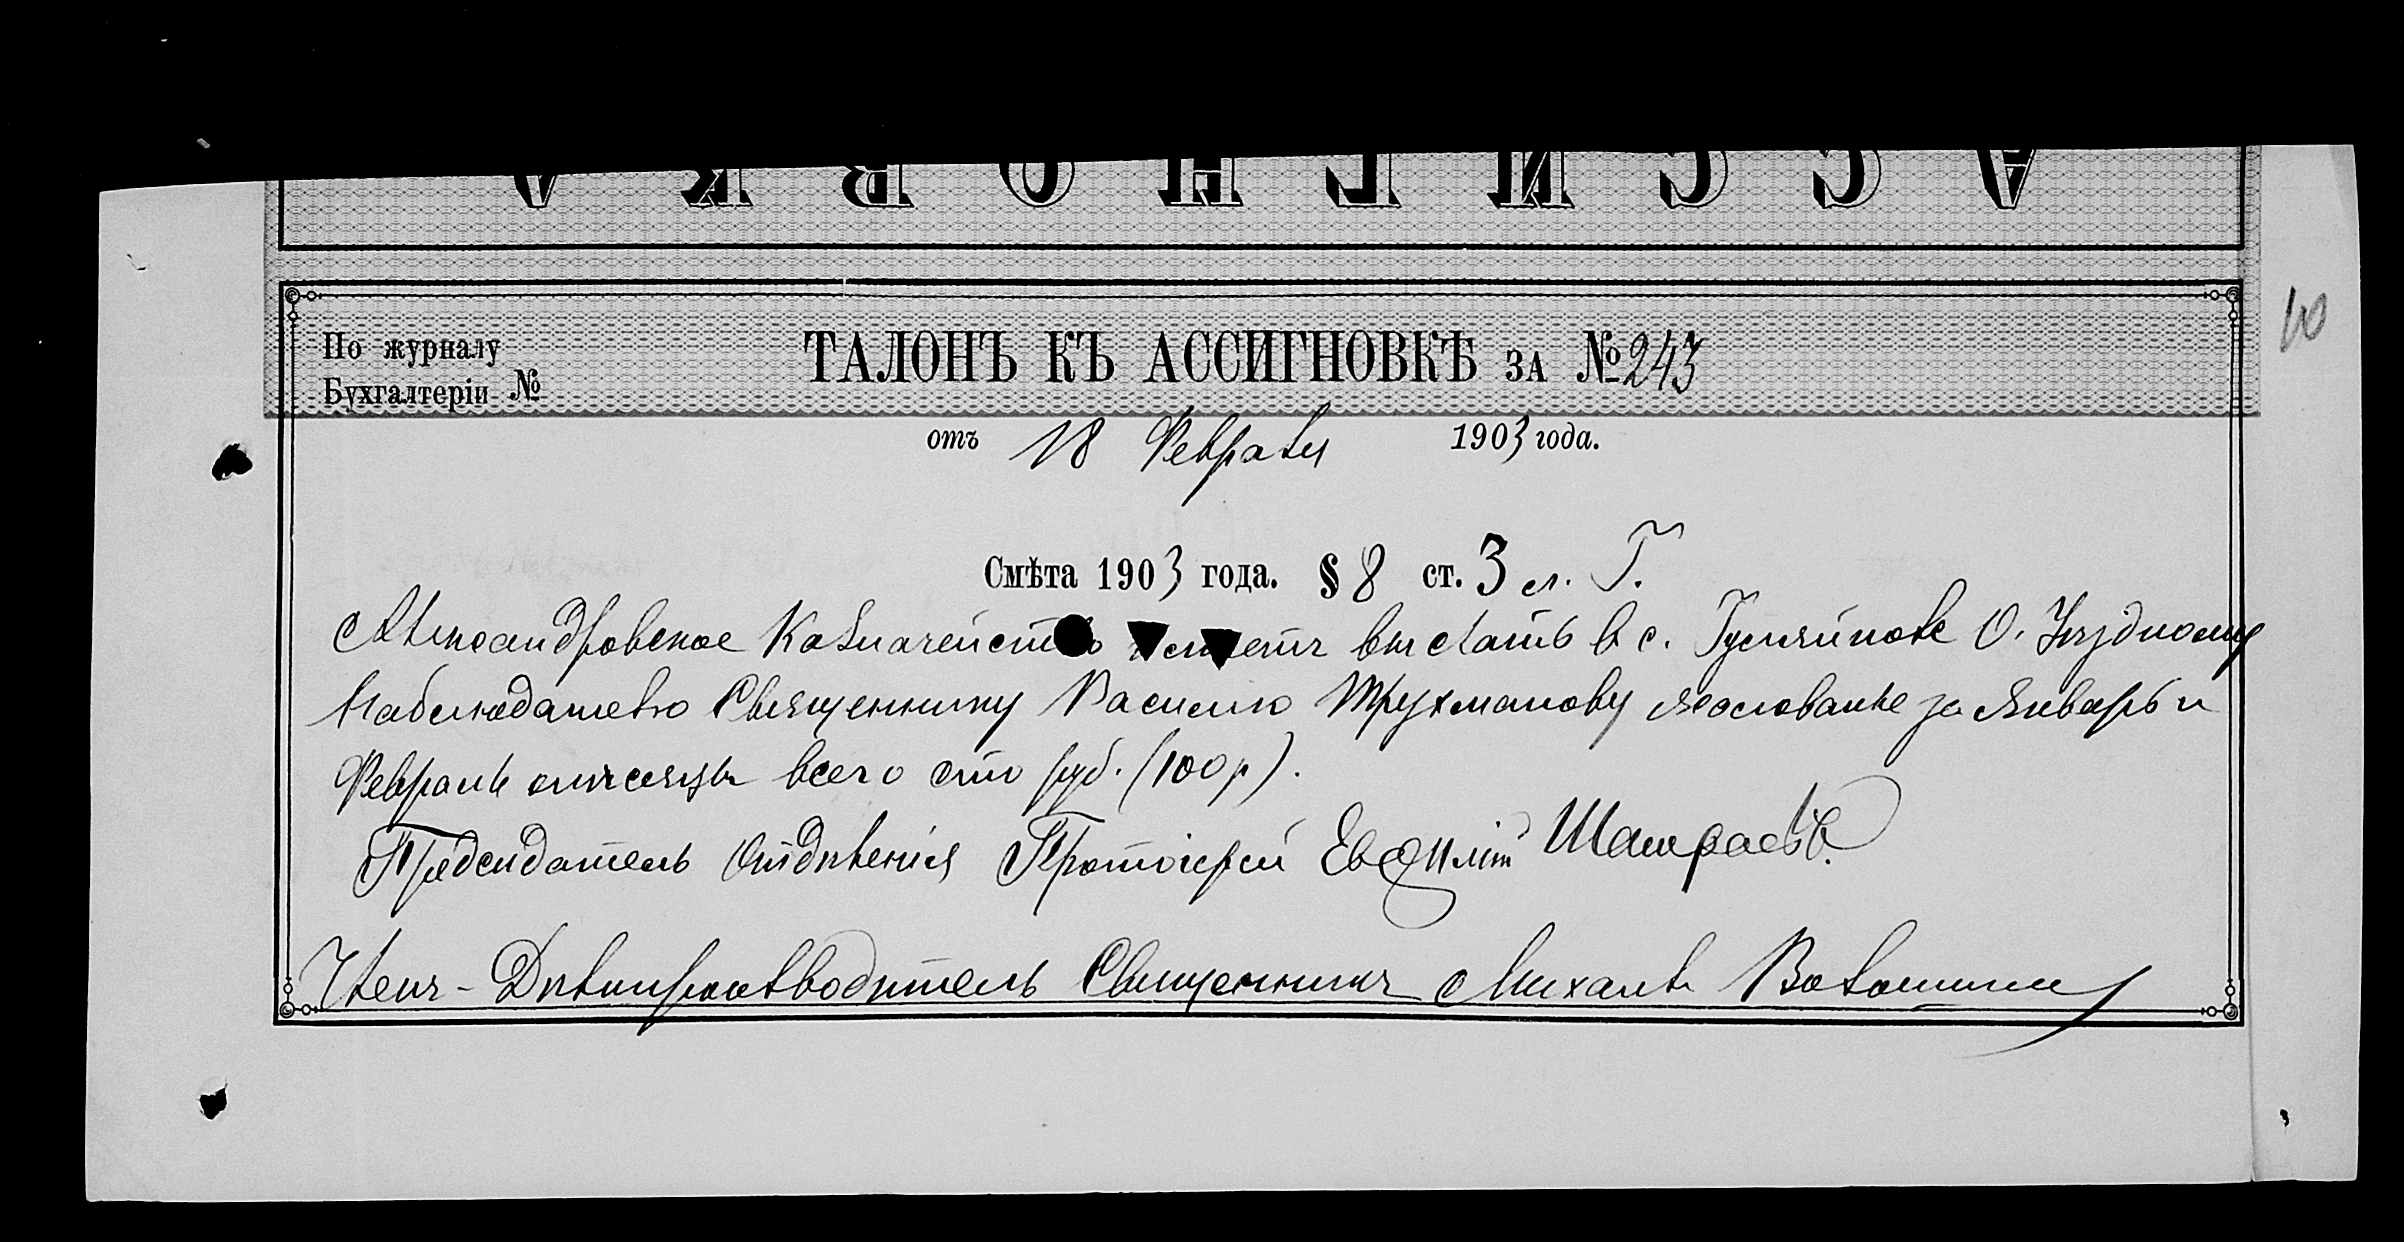 АССИГНОВКА
По журналу
Бухгалтеріи №
ТАЛОНЪ КЪ АССИГНОВКѢ ЗА № 243
отъ 18 Февраля 1903 года.
Смѣта 1903 года. § 8 ст. 3 л. Г.
Александровское Казначейство выслать в с. Гусляйпове О. Уѣздному
Наблюдателю Священнику Василию Трухманову жалованье за Январь и
Февраль мѣсяцы всего сто руб. (100 р).
Предсѣдатель Отдѣленія Протоіерей
Членъ-Дѣлопроизводитель Священникъ Михаилъ Волошинъ
10